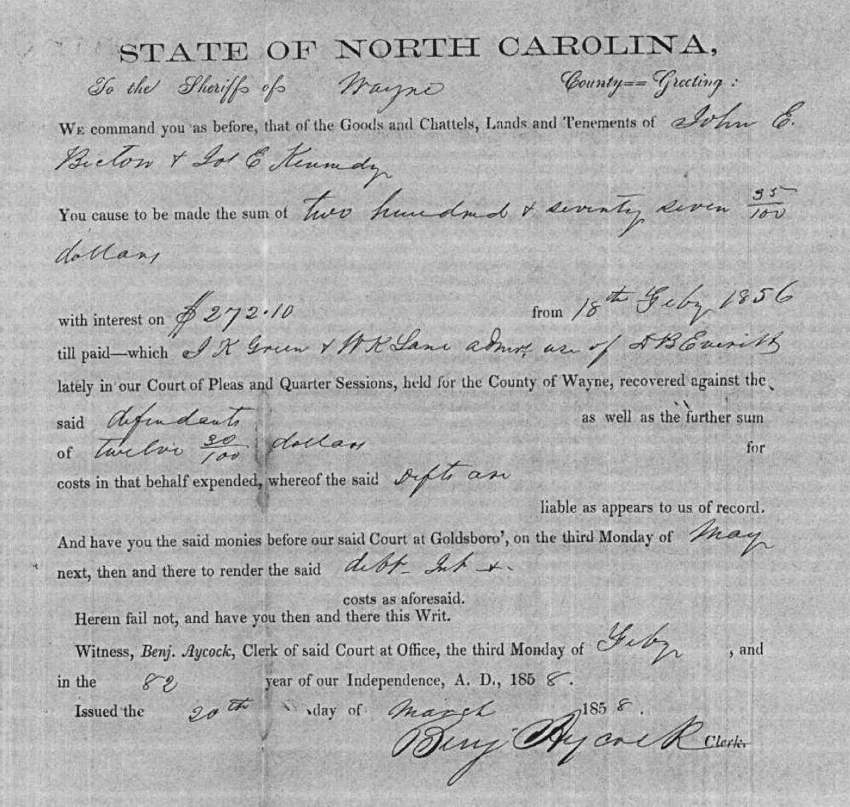 STATE OF NORTH CAROLINA,
To the Sheriff of Wayne County== Greeting:
WE command you as before, that of the Goods and Chattels, Lands and Tenements of John E.
Becton & Jos E Kennedy
You cause to be made the sum of two hundred & seventy seven 35/100
dollars
with interest on $272.10 from 18th Feby 1856
till paid—which J K Green & W K Lane admrs use of D B Everitt
lately in our Court of Pleas and Quarter Sessions, held for the County of Wayne, recovered against the
said defendants as well as the further sum
of twelve 30/100 dollars for
costs in that behalf expended, whereof the said Defts are
liable as appears to us of record.
And have you the said monies before our said Court at Goldsboro', on the third Monday of May
next, then and there to render the said debt Int &
costs as aforesaid.
Herein fail not, and have you then and there this Writ.
Witness, Benj. Aycock, Clerk of said Court at Office, the third Monday of Feby, and
in the 82 year of our Independence, A. D., 1858.
Issued the 20th day of March 1858.
Benj Aycock Clerk